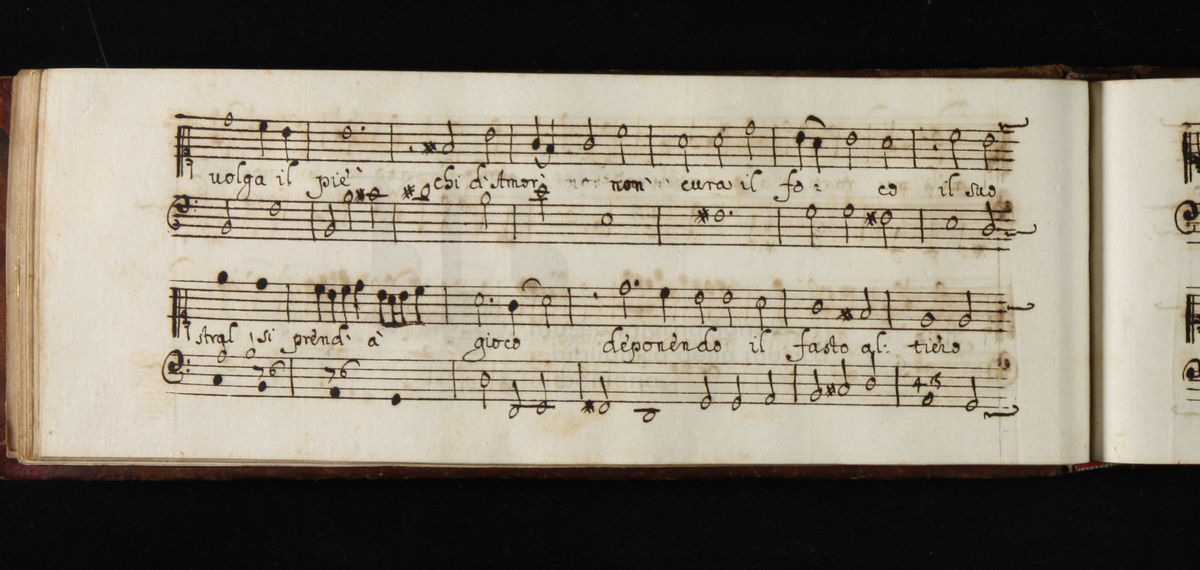 volga il piè chi d'Amor non cura il fo: co il suo
stral si prend' à gioco deponendo il fasto al: tiero
76 76 43